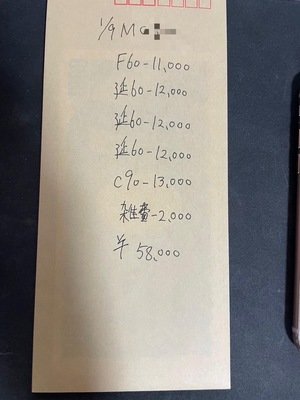 1/9 M
F60-11,000
延60-12,000
延60-12,000
延60-12,000
C90-13,000
雑費-2,000
¥ 58,000